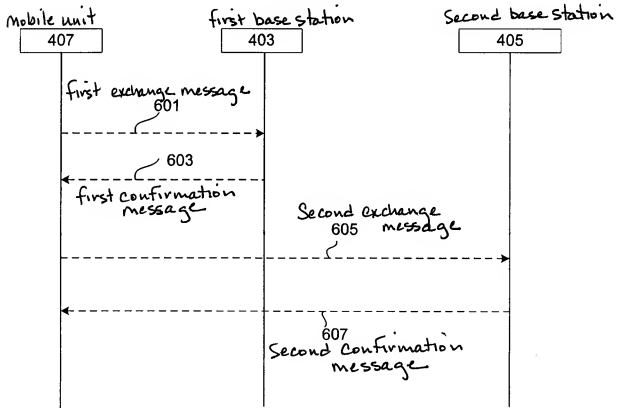 mobile unit first base station Second base station
407 403 405
first exchange message
601
603
first confirmation
message
Second exchange
605 message
607
Second Confirmation
message